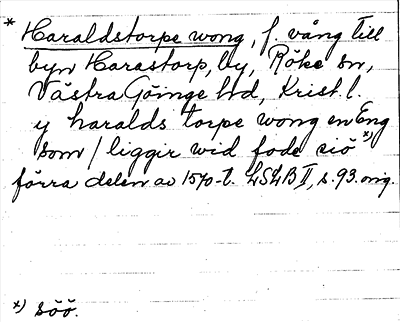 * Haraldstorpe wong, f. vång till
byn Harastorp, by, Röke sn,
Västra Göinge hd, Krist. l.
y haralds torpe wong en Eng
som / liggir wid fode siö *)
förra delen av 1570-t. LSLB II, s. 93. orig.
*) söö.